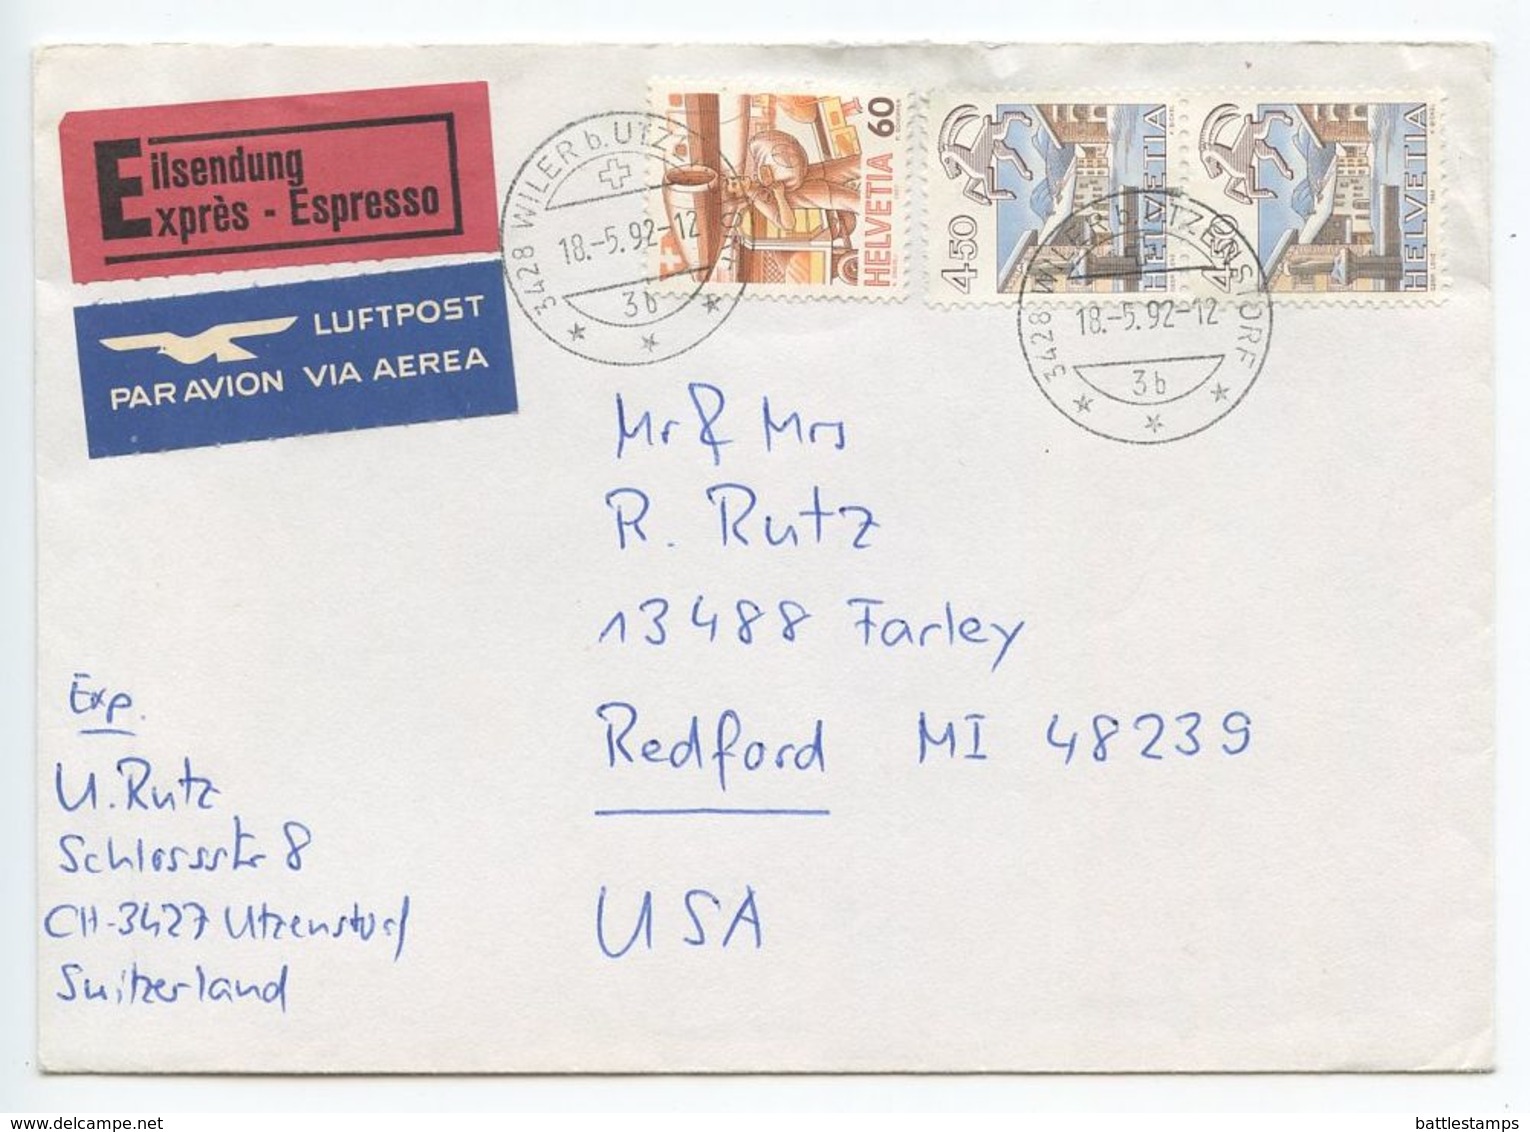 Eilsendung
Exprès - Espresso
LUFTPOST
PAR AVION VIA AEREA
3428 WILER b. UTZ
18.-5.92-12
3b
60
HELVETIA
4.50
HELVETIA
4.50
HELVETIA
3428 WILER b. UTZENSTORF
18.-5.92-12
3b
Mr & Mrs
R. Rutz
13488 Farley
Redford MI 48239
USA
Exp.
U. Rutz
Schlossstr 8
CH-3427 Utzenstorf
Switzerland
battlestamps